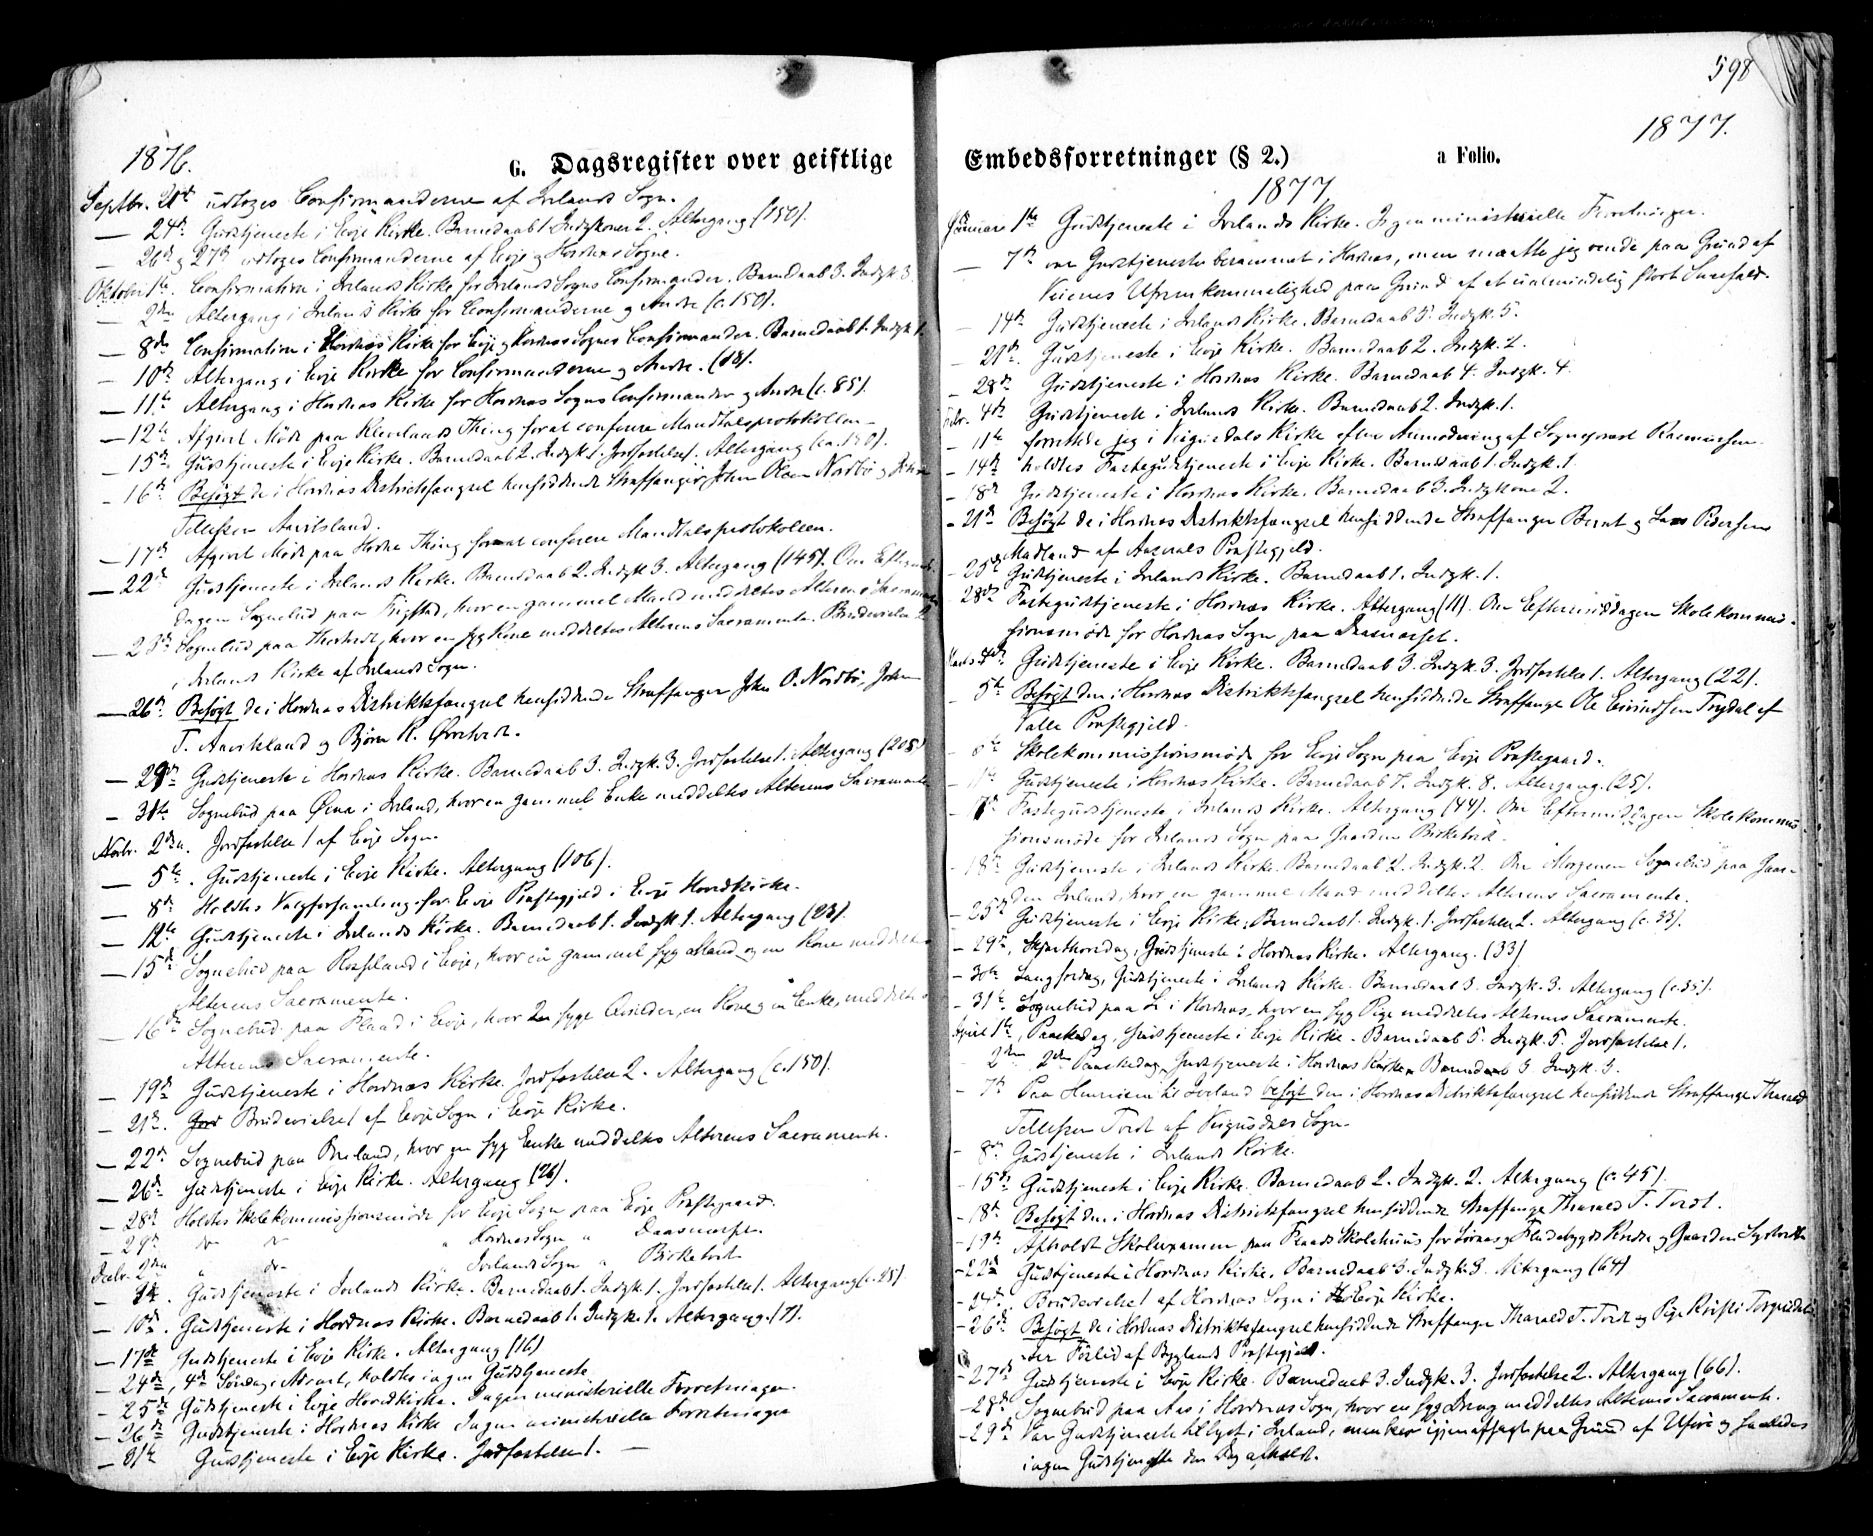 598
1876.
1877.
G. Dagsregister over geistlige Embedsforretninger (§ 2.) a Folio.
Septbr. 21de udtoges Confirmanderne af Ivelands Sogn.
— 24de Gudstjeneste i Evje Kirke. Barnedaab 1. Indgkoner 2. Altergang (150).
— 26de og 27de udtoges Confirmanderne af Evje og Hordnæs Sogne.
Oktober 1ste. Confirmation i Ivelands Kirke for Ivelands Sogns Confirmander. Barnedaab 3. Indgk 3.
— 2den Altergang i Ivelands Kirke for Confirmanderne og Andre (c. 150).
— 8de Confirmation i Hordnæs Kirke for Evje og Hordnæs Sognes Confirmander. Barnedaab 1. Indgk 1.
— 10de Altergang i Evje Kirke for Confirmanderne og Andre.
— 11te Altergang i Hordnæs Kirke for Hordnæs Sogns Confirmander og Andre (c. 85).
— 12te Afgivet Møde paa Thing for at conferere Mandtalsprotokollen.
— 15de. Gudstjeneste i Evje Kirke. Barnedaab 2. Indgk 1. Jordfæstelse 1. Altergang (ca. 150).
— 16de Besøgt de i Hordnæs Distriktsfængsel hensiddende Straffanger, John Olsen Nordbø og John
Tellefsen Aavitsland.
— 17de Afgivet Møde paa Thing for at conferere Mandtalsprotokollen.
— 22de Gudstjeneste i Ivelands Kirke. Barnedaab 2. Indgk 3. Altergang (145). Om Eftermid-
dagen Sognebud paa Frigstad, hvor en gammel Mand meddeltes Alterens Sacramente
— 25de Sognebud paa, hvor en syg Kone meddeltes Alterens Sacramente. Brudevielse 2
i Ivelands Kirke af Ivelands Sogn.
— 26de Besøgt de i Hordnæs Distriktsfængsel hensiddende Straffanger John O. Nordbø, John
T. Aavitsland og Bjørn K.
— 29de Gudstjeneste i Hordnæs Kirke. Barnedaab 3. Indgk 3. Jordfæstelse 1. Altergang (205)
— 31te Sognebud paa i Iveland, hvor en gammel Enke meddeltes Alterens Sacramente.
Novbr. 2den. Jordfæstelse 1 af Evje Sogn.
— 5te. Gudstjeneste i Evje Kirke. Altergang (106).
— 8de Holdtes Valgforsamling for Evje Præstegjeld i Evje Hovedkirke.
— 12te Gudstjeneste i Ivelands Kirke. Barnedaab 1. Indgk 1. Altergang (23).
— 15de Sognebud paa Rosseland i Evje, hvor en gammel syg Mand og en Kone meddeltes
Alterens Sacramente.
— 16de Sognebud paa Flaad i Evje, hvor 2 syge Qvinder, en Kone og en Enke, meddeltes
Alterens Sacramente.
— 19de Gudstjeneste i Hordnæs Kirke. Jordfæstelse 2. Altergang (c. 150).
— 21de. Brudevielse 1 af Evje Sogn i Evje Kirke.
— 22de Sognebud paa, hvor en syg Enke meddeltes Alterens Sacramente.
— 26de Gudstjeneste i Evje Kirke. Altergang (26).
— 28de Holdtes Skolekommissionsmøde for Evje Sogn paa Evje Præstegaard.
— 29de do do " Hordnæs Sogn "
Decbr. 2den " do " Ivelands Sogn " Birketveit
— 3de. Gudstjeneste i Ivelands Kirke. Barnedaab 1. Indgk. 1. Jordfæstelse 1. Altergang
— 10de. Gudstjeneste i Hordnæs Kirke. Barnedaab 1. Indgk. 1. Altergang (7).
— 17de Gudstjeneste i Evje Kirke. Altergang (16)
— 24de, 4de Søndag i Advent, holdtes ingen Gudstjeneste
— 25de Gudstjeneste i Evje Hovedkirke. Ingen ministerielle Forretninger.
— 26de Gudstjeneste i Hordnæs Kirke Ingen ministerielle Forretninger
— 31te Gudstjeneste i Evje Kirke. Jordfæstelse 1. —
1877
Januar 1ste Gudstjeneste i Ivelands Kirke. Ingen ministerielle Forretninger.
— 7de var Gudstjeneste berammet i Hordnæs, men maatte jeg vende paa Grund af
Veienes Ufremkommelighed paa Grund af et ualmindelig stort Sneefald.
— 14de Gudstjeneste i Ivelands Kirke. Barnedaab 5. Indgk. 5.
— 21de. Gudstjeneste i Evje Kirke. Barnedaab 2. Indgk. 2.
— 28de Gudstjeneste i Hordnæs Kirke. Barnedaab 4. Indgk. 4.
Febr. 4de Gudstjeneste i Ivelands Kirke. Barnedaab 2. Indgk. 1.
— 11te forrettede jeg i Veigusdals Kirke efter Anmodning af Sognepræst Rasmussen.
— 14de holdtes Fastegudstjeneste i Evje Kirke. Barnedaab 1. Indgk. 1.
— 18de Gudstjeneste i Hordnæs Kirke. Barnedaab 3. Indgkone 2.
— 21de Besøgt de i Hordnæs Distriktsfængsel hensiddende Straffanger Bernt og Lars Pedersen
Madland af Aaserals Præstegjeld.
— 25de Gudstjeneste i Ivelands Kirke. Barnedaab 1. Indgk. 1.
28de Fastegudstjeneste i Hordnæs Kirke. Altergang (11). Om Eftermiddagen Skolekommis-
sionsmøde for Hordnæs Sogn paa
Marts 4de. Gudstjeneste i Evje Kirke. Barnedaab 3. Indgk. 3. Jordfæstelse 1. Altergang (22).
— 5te Besøgt den i Hordnæs Distriktsfængsel hensiddende Straffange Ole Eivindsen Trydal af
Valle Præstegjeld.
— Skolekommissionsmøde for Evje Sogn paa Evje Præstegaard.
— 11te Gudstjeneste i Hordnæs Kirke. Barnedaab 7. Indgk. 8. Altergang. (25).
— Fastegudstjeneste i Ivelands Kirke. Altergang (44). Om Eftermiddagen Skolekommis-
sionsmøde for Ivelands Sogn paa Gaarden Birketveit.
— 18de Gudstjeneste i Ivelands Kirke. Barnedaab 2. Indgk. 2. Om Morgenen Sognebud paa Gaar-
den Iveland, hvor en gammel Mand meddeltes Alterens Sacramente.
— 25de Gudstjeneste i Evje Kirke, Barnedaab 1. Indgk. 1. Jordfæstelse 2. Altergang (c. 33).
— 29de, Skjærthorsdag, Gudstjeneste i Hordnæs Kirke. Altergang. (33)
— 30te Langfredag, Gudstjeneste i Ivelands Kirke. Barnedaab 3. Indgk. 3. Altergang (c. 35).
— 31te Sognebud paa Li i Hordnæs, hvor en syg Pige meddeltes Alterens Sacramente.
April 1ste, Paaskedag, Gudstjeneste i Evje Kirke. Barnedaab 5. Indgk. 5. Jordfæstelse 1.
— 2den 2den Paaskedag, Gudstjeneste i Hordnæs Kirke. Barnedaab 3 Indgk. 3.
— 7de Paa Henreisen til Iveland besøgt den i Hordnæs Distriktsfængsel hensiddende Straffange Tharald
Tellefsen Tordt af Veigusdals Sogn.
— 8de Gudstjeneste i Ivelands Kirke.
— 15de Gudstjeneste i Evje Kirke. Barnedaab 2. Indgk. 2. Altergang (c. 45).
— 18de Besøgt den i Hordnæs Distriktsfængsel hensiddende Straffange Tharald T. Tordt.
— 19de Afholdt Skoleexamen paa Flaads Skolehuus for og Kreds og Gaarden
— 22de Gudstjeneste i Hordnæs Kirke. Barnedaab 3. Indgk. 3. Altergang (64)
— 24de. Brudevielse 1 af Hordnæs Sogn i Evje Kirke.
— 26de. Besøgt de i Hordnæs Distriktsfængsel hensiddende Straffanger Tharald T. Tordt og Pige
af Byglands Præstegjeld.
— 27de Gudstjeneste i Evje Kirke. Barnedaab 3. Indgk. 3. Jordfæstelse 2. Altergang (66).
— 28de Sognebud paa Aas i Hordnæs Sogn, hvor en syg Dreng meddeltes Alterens Sacramente.
— 29de Var Gudstjeneste tillyst i Iveland, men blev igjen afsagt paa Grund af Uføre og saaledes
ingen Gudstjeneste den Dag afholdt.